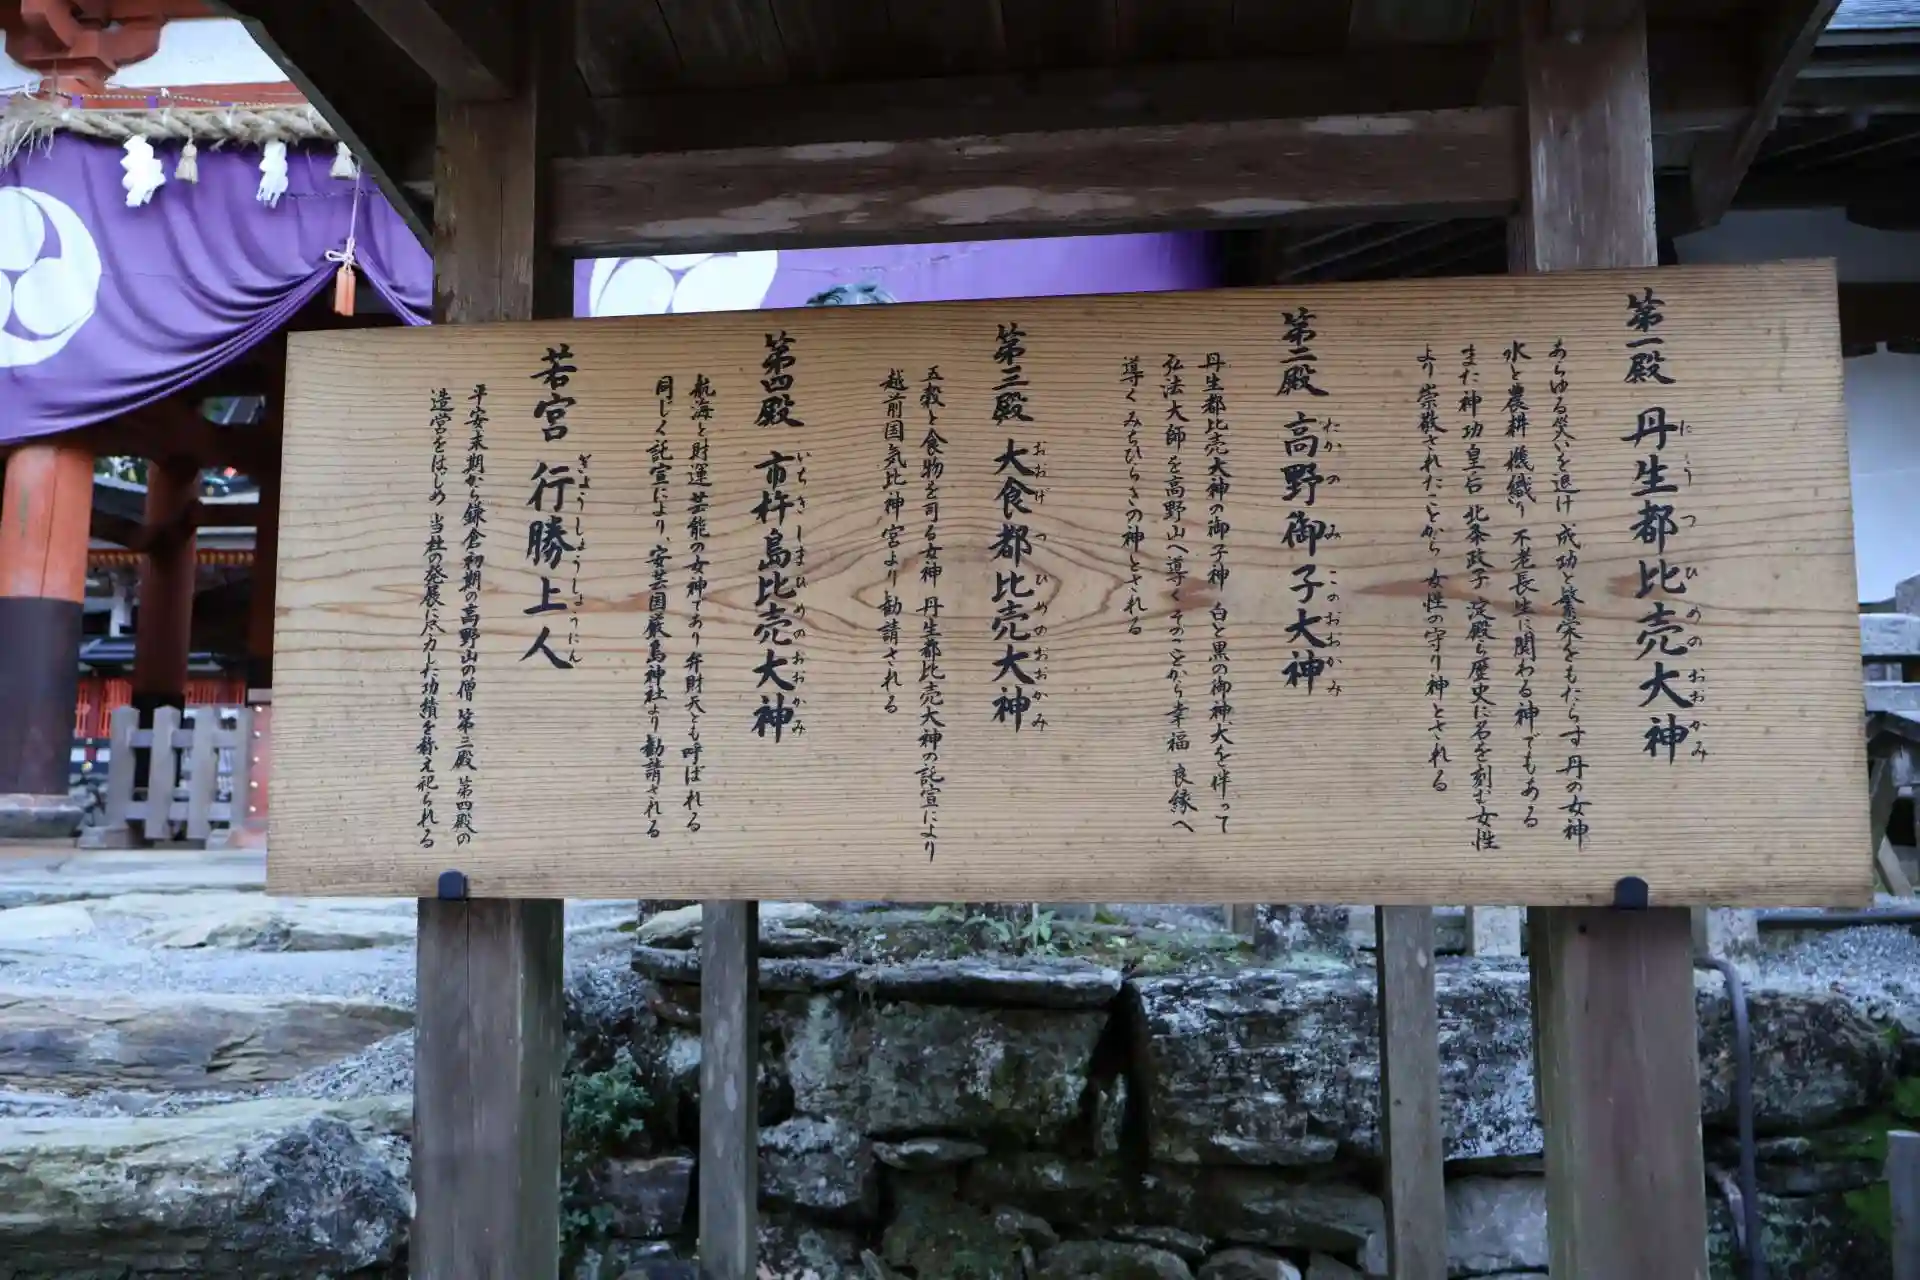 第一殿 丹生都比売大神
にうつひめのおおかみ
あらゆる災いを退け 成功と繁栄をもたらす丹の女神
水と農耕 機織り 不老長生に関わる神でもある
また神功皇后 北条政子 淀殿ら歴史に名を刻む女性
より崇敬されたことから 女性の守り神とされる
第二殿 高野御子大神
たかのみこのおおかみ
丹生都比売大神の御子神 白と黒の御神犬を伴って
弘法大師を高野山へ導く そのことから幸福 良縁へ
導く みちひらきの神とされる
第三殿 大食都比売大神
おおげつひめのおおかみ
五穀と食物を司る女神 丹生都比売大神の託宣により
越前国気比神宮より勧請される
第四殿 市杵島比売大神
いちきしまひめのおおかみ
航海と財運 芸能の女神であり 弁財天とも呼ばれる
同じく託宣により、安芸国厳島神社より勧請される
若宮 行勝上人
ぎょうしょうしょうにん
平安末期から鎌倉初期の高野山の僧 第三殿 第四殿の
造営をはじめ 当社の発展に尽力した功績を称え祀られる